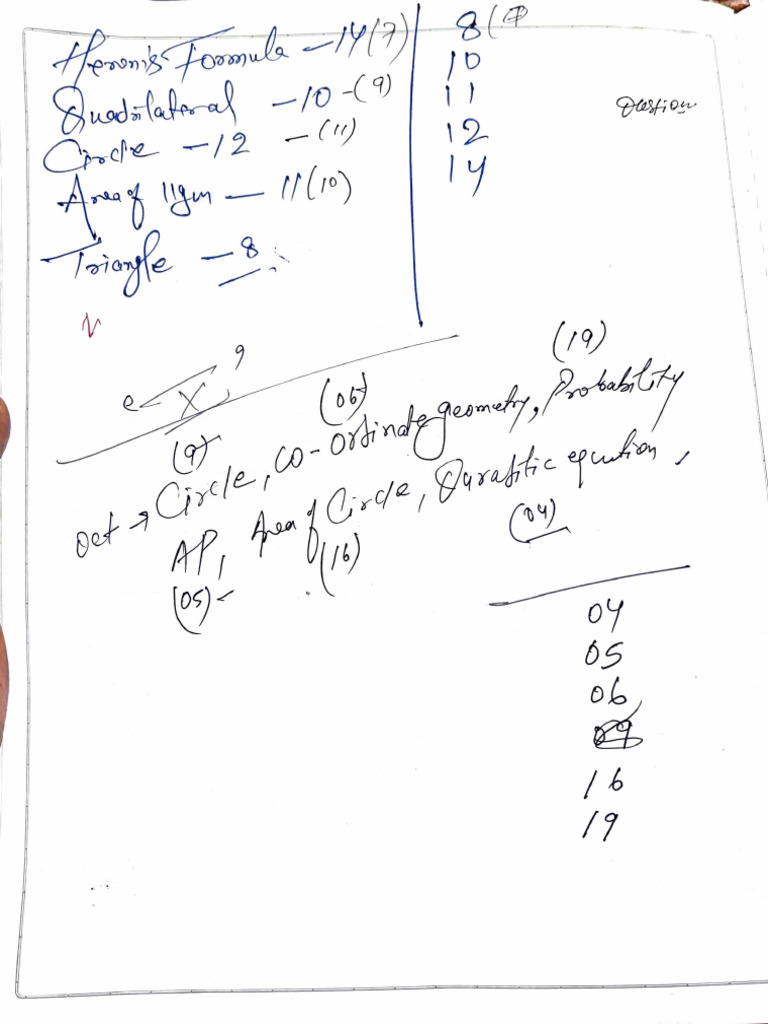 Heron's Formula – 14 (7)
Quadrilateral – 10 – (9)
Circle – 12 – (11)
Area of llgm – 11 (10)
Triangle – 8
8 (7
10
11
12
14
Question
X
9
(19)
(06)
(9)
Oct → Circle, CO-Ordinate geometry, Probability
AP, Area of Circle, Quratitic equation,
(04)
(16)
(05)
04
05
06
09
16
19